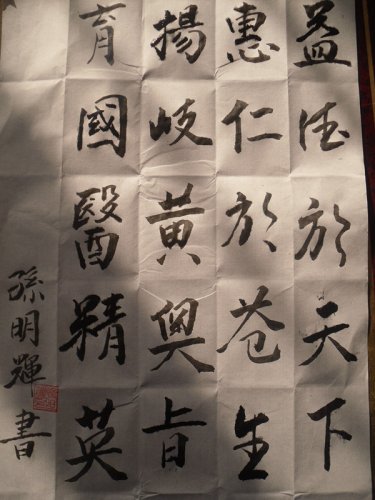 益德於天下
惠仁於苍生
揚岐黃奧旨
育國醫精英
孫明輝書